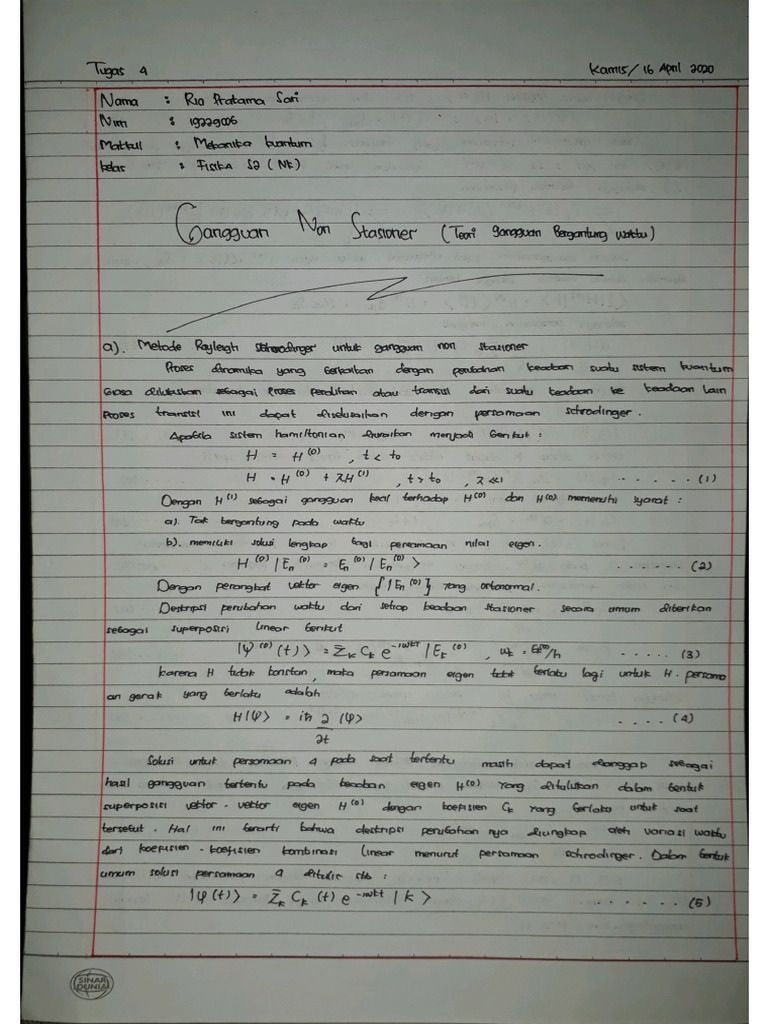 Tugas 4 Kamis/ 16 April 2020
Nama : Rio Pratama Sari
Nim : 19229006
Matkul : Mekanika kuantum
kelas : Fisika S2 ( NK)
Gangguan Non Stasioner (Teori gangguan Bergantung waktu)
a). Metode Rayleigh schrodinger untuk gangguan non stasioner
Proses dinamika yang berkaitan dengan perubahan keadaan suatu sistem kuantum
biasa dilukiskan sebagai proses peralihan atau transisi dari suatu keadaan ke keadaan lain
Proses transisi ini dapat diselesaikan dengan persamaan schrodinger.
Apabila sistem hamiltonian diuraikan menjadi berikut :
H = H⁽⁰⁾ , t < t₀
H = H⁽⁰⁾ + λH⁽¹⁾ , t > t₀ , λ ≪ 1 ...... (1)
Dengan H⁽¹⁾ sebagai gangguan kecil terhadap H⁽⁰⁾ dan H⁽⁰⁾ memenuhi syarat :
a). Tak bergantung pada waktu
b). memiliki solusi lengkap bagi persamaan nilai eigen.
H⁽⁰⁾ |Eₙ⁽⁰⁾ = Eₙ⁽⁰⁾ |Eₙ⁽⁰⁾ > ...... (2)
Dengan perangkat vektor eigen {|Eₙ⁽⁰⁾} yang ortonormal.
Deskripsi perubahan waktu dari setiap keadaan stasioner secara umum diberikan
sebagai superposisi linear berikut
|ψ⁽⁰⁾(t)> = Σₖ Cₖ e^(-iωkt) |Eₖ⁽⁰⁾ , ωₖ = Eₖ⁽⁰⁾/ħ ..... (3)
karena H tidak konstan, maka persamaan eigen tidak berlaku lagi untuk H. persama
an gerak yang berlaku adalah
H|ψ> = iħ ∂/∂t |ψ> .... (4)
Solusi untuk persamaan 4 pada saat tertentu masih dapat dianggap sebagai
hasil gangguan tertentu pada keadaan eigen H⁽⁰⁾ yang dituliskan dalam bentuk
superposisi vektor - vektor eigen H⁽⁰⁾ dengan koefisien Cₖ yang berlaku untuk saat
tersebut. Hal ini berarti bahwa deskripsi perubahan nya diungkap oleh variasi waktu
dari koefisien - koefisien kombinasi linear menurut persamaan schrodinger. Dalam bentuk
umum solusi persamaan 4 ditulis sbb :
|ψ(t)> = Σₖ Cₖ (t) e^(-iωkt) |k> ...... (5)
SINAR
DUNIA